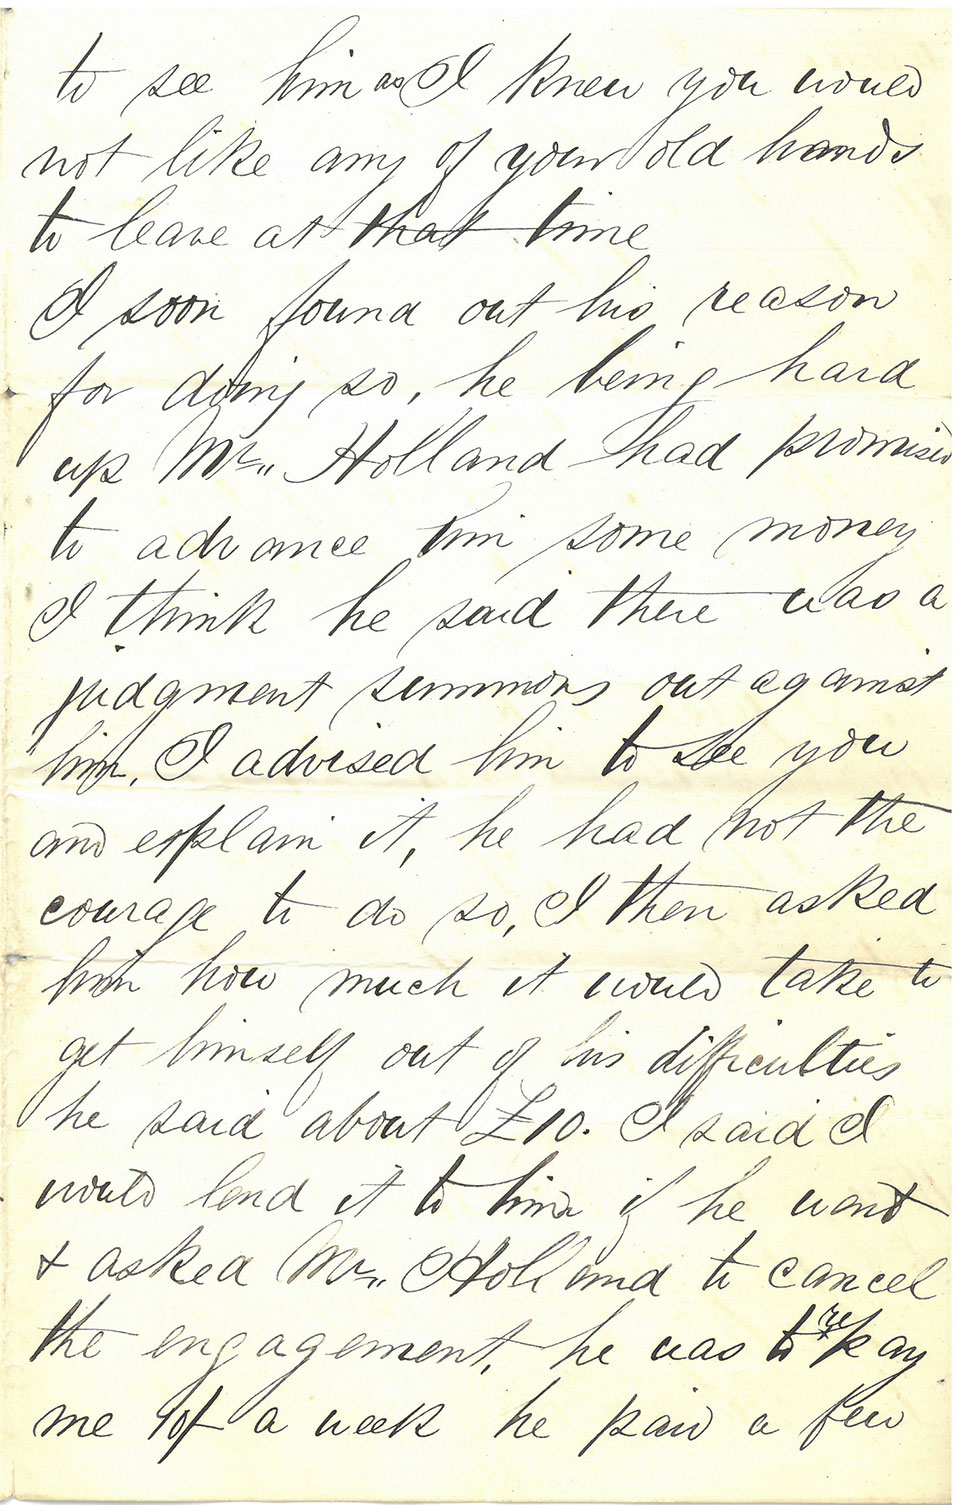 to see him as I knew you would
not like any of your old hands
to leave at that time
I soon found out his reason
for doing so, he being hard
up Mr. Holland had promised
to advance him some money
I think he said there was a
judgment summons out against
him, I advised him to see you
and explain it, he had not the
courage to do so, I then asked
him how much it would take to
get himself out of his difficulties
he said about £10. I said I
would lend it to him if he went
& asked Mr. Holland to cancel
the engagement, he was to repay
me 10/- a week he paid a few